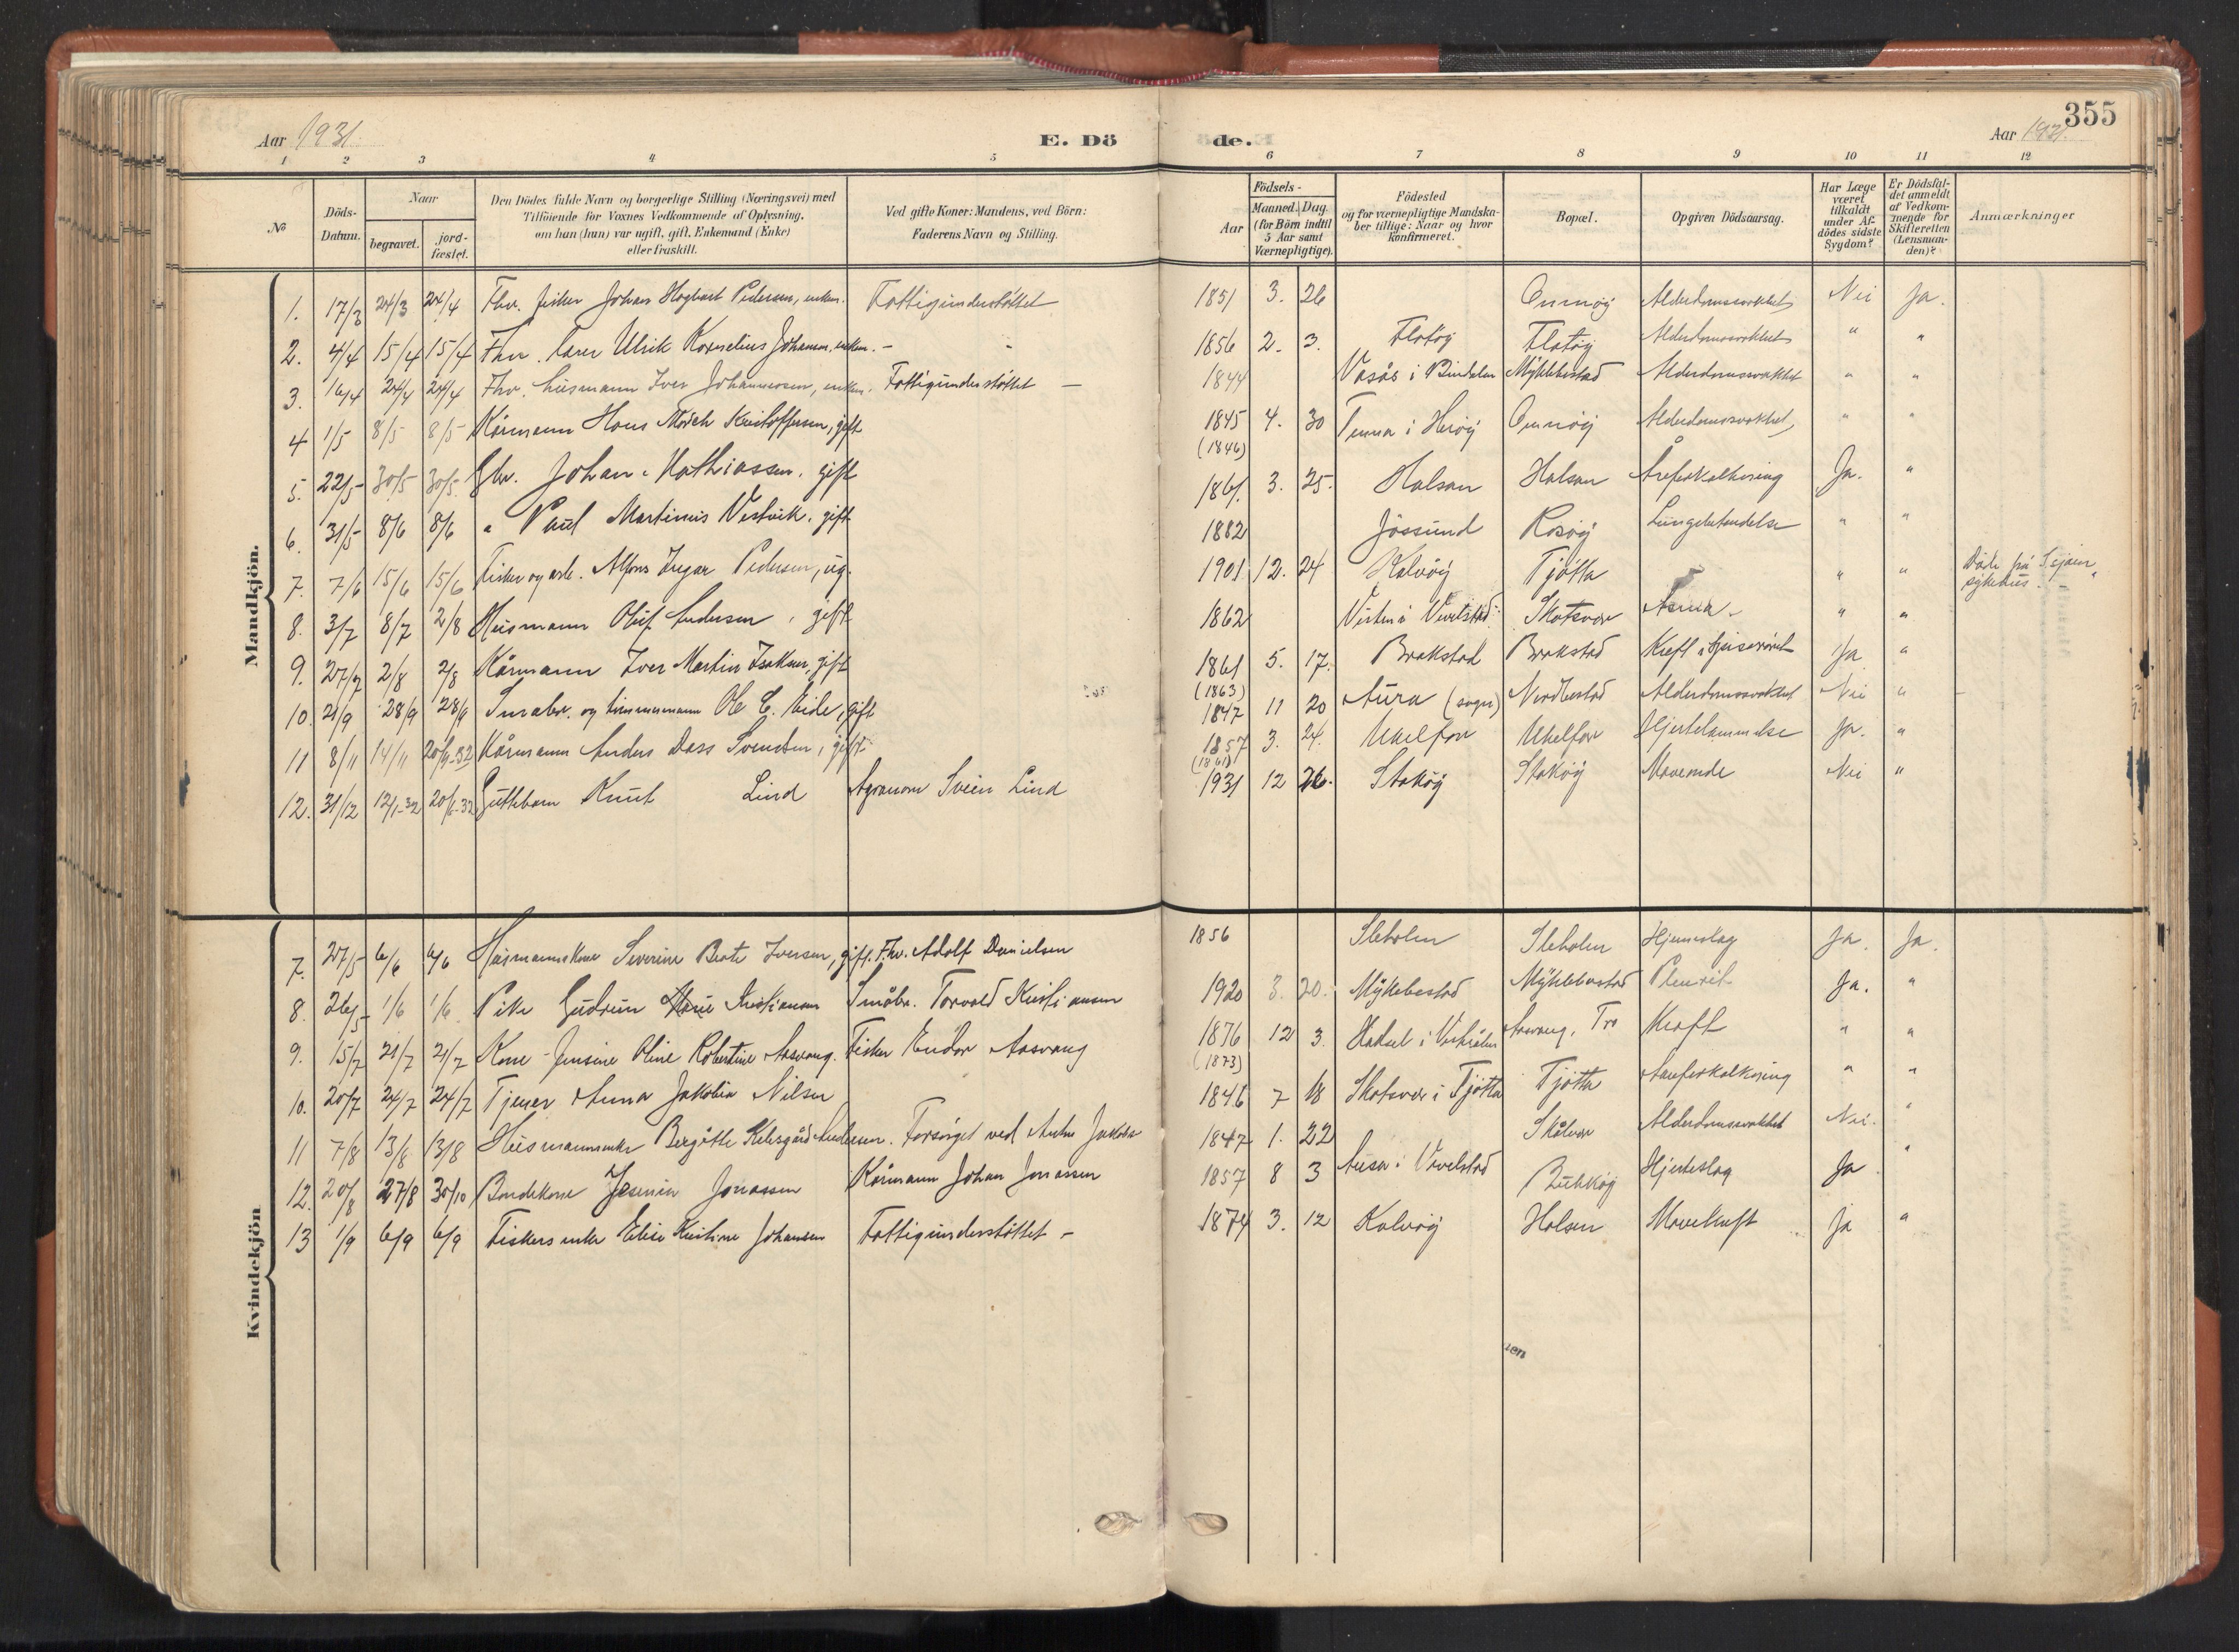 355
Aar 1931.
E. Dö
de.
Aar 1931.
1 2 3 4 5 6 7 8 9 10 11 12
No
Döds-
Datum.
Naar
begravet.
jord-
fæstet.
Den Dödes fulde Navn og borgerlige Stilling (Næringsvei) med
Tilföiende for Voxnes Vedkommende af Oplysning,
om han (hun) var ugift, gift, Enkemand (Enke)
eller fraskilt.
Ved gifte Koner: Mandens, ved Börn:
Faderens Navn og Stilling.
Födsels-
Aar
Maaned. Dag.
(for Börn indtil
5 Aar samt
Værnepligtige).
Födested
og for værnepligtige Mandska-
ber tillige: Naar og hvor
konfirmeret.
Bopæl.
Opgiven Dödsaarsag.
Har Læge
været
tilkaldt
under Af-
dödes sidste
Sygdom?
Er Dödsfal-
det anmeldt
af Vedkom-
mende for
Skifteretten
(Lensman-
den)?
Anmærkninger
Mandkjön.
1. 17/3 24/3 24/4 Fhv. fisker Johan Hagbart Pedersen, enkem. Fattigunderstøttet 1851 3. 26 Omnøy Alderdomssvakhet Nei Ja.
2. 4/4 15/4 15/4 Fhv. Ulrik Kornelius Johansen, enkem. - - 1856 2. 3. Flatøy Flatøy Alderdomssvakhet " "
3. 16/4 24/4 24/4 Fhv. husmann Iver Johannessen, enkem. Fattigunderstøttet - 1844 Vasås i Bindalen Myklebostad Alderdomssvakhet " "
4 1/5 8/5 8/5 Kårmann Hans Kristoffersen, gift 1845 4. 30 Tenna i Herøy Omnøy Alderdomssvakhet " "
(1846)
5. 22/5 30/5 30/5 Gbr. Johan Mathiassen. gift 1861. 3. 25. Halsan Halsan Åreforkalkning Ja. "
6. 31/5 8/6 8/6 " Paul Martinus Vestvik. gift 1882 Jøssund Rosøy Lungebetendelse " "
7. 7/6 15/6 15/6 Fisker og arb. Alfons Ingar Pedersen, ug. 1901 12. 24 Kalvøy Tjøtta " " Døde på
sykehus.
8. 3/7 8/7 2/8 Husmann Oluf Andersen, gift 1862 i Vevelstad Skotsvær Asma " "
9. 27/7 2/8 2/8 Kårmann Iver Martin Isaksen, gift 1861 5. 17. Brakstad Brakstad Kreft i spiserøret Ja "
(1863)
10. 21/9 28/9 28/9 Småbr. og tømmermann Ole C. Eide, gift 1847 11 20 Aura (sogn) Alderdomssvakhet Nei "
11 8/11 14/11 20/9-32 Kårmann Anders Dass Svendsen, gift 1857 3. 24. Hjertelammelse Ja. "
(1861)
12. 31/12 12/1-32 20/6-32 Guttebarn Knut Lind Agronom Svein Lind 1931 12 26. Stokøy Stokøy Maveonde Nei "
Kvindekjön
7. 27/5 6/6 6/6 Husmannskone Severine Berte Iversen, gift. Fhv. Adolf Danielsen 1856 Sleholm Sleholm Hjerneslag Ja. Ja.
8. 26/5 1/6 1/6 Pike Gudrun Marie Kristiansen Småbr. Torvald Kristiansen 1920 3. 20. Myklebostad Myklebostad Pleurit Ja. "
9. 15/7 21/7 21/7 Kone Jensine Oline Robertine Aasvang. Fisker Eidar Aasvang 1876 12 3. Hadsel i Vesterålen Aasvang, Tro Kræft " "
(1873)
10. 20/7 24/7 24/7 Tjener Anna Jakobia Nilsen 1846 7 18 Skotsvær i Tjøtta Tjøtta Aareforkalkning " "
11 7/8 13/8 13/8 Husmannsenke Bergitte Andersen. Forsørget ved 1847 1. 22 Skålvær Alderdomssvakhet Nei. "
12. 20/8 27/8 30/10 Bondekone Jonassen Kårmann Johan Jonassen 1857 8 3 Ausa i Vevelstad Hjerteslag Ja "
13 1/9 6/9 6/9 Fiskersenke Elise Kristine Johansen Fattigunderstøttet - 1874 3. 12 Kalvøy Halsan Mavekreft Ja "